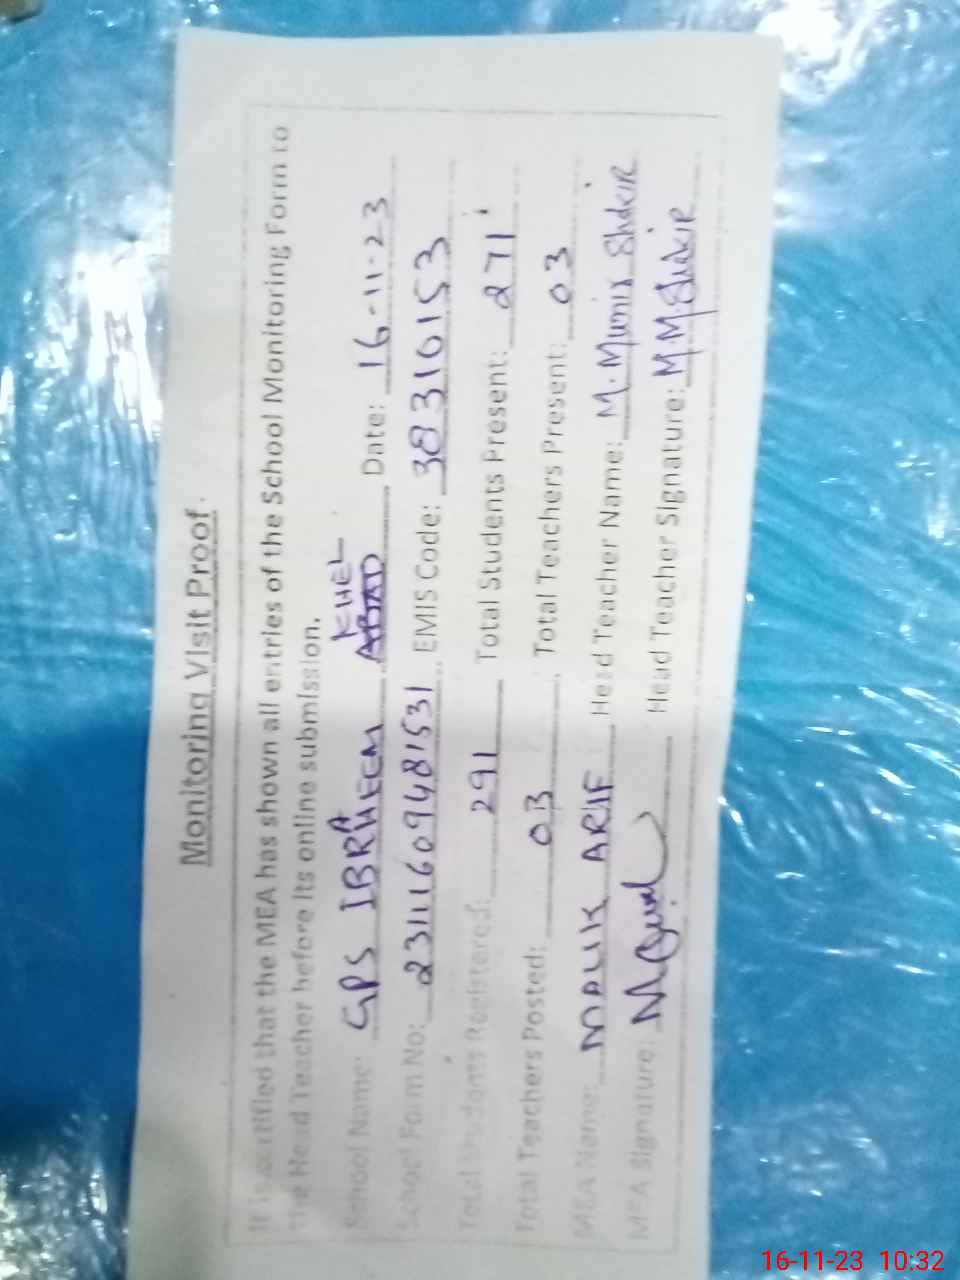 Monitoring Visit Proof.
It is certified that the MEA has shown all entries of the School Monitoring Form to
the Head Teacher before its online submission.
School Name: GPS IBRAHEEM KHEL Date: 16-11-23
School Form No: 23111609481531 EMIS Code: 38310153
Total Students Registered: 291 Total Students Present: 271
Total Teachers Posted: 03 Total Teachers Present: 03
MEA Name: MALIK ARIF Head Teacher Name: M. Munir Shakir
MEA Signature: Head Teacher Signature: M.M.Shakir
16-11-23 10:32